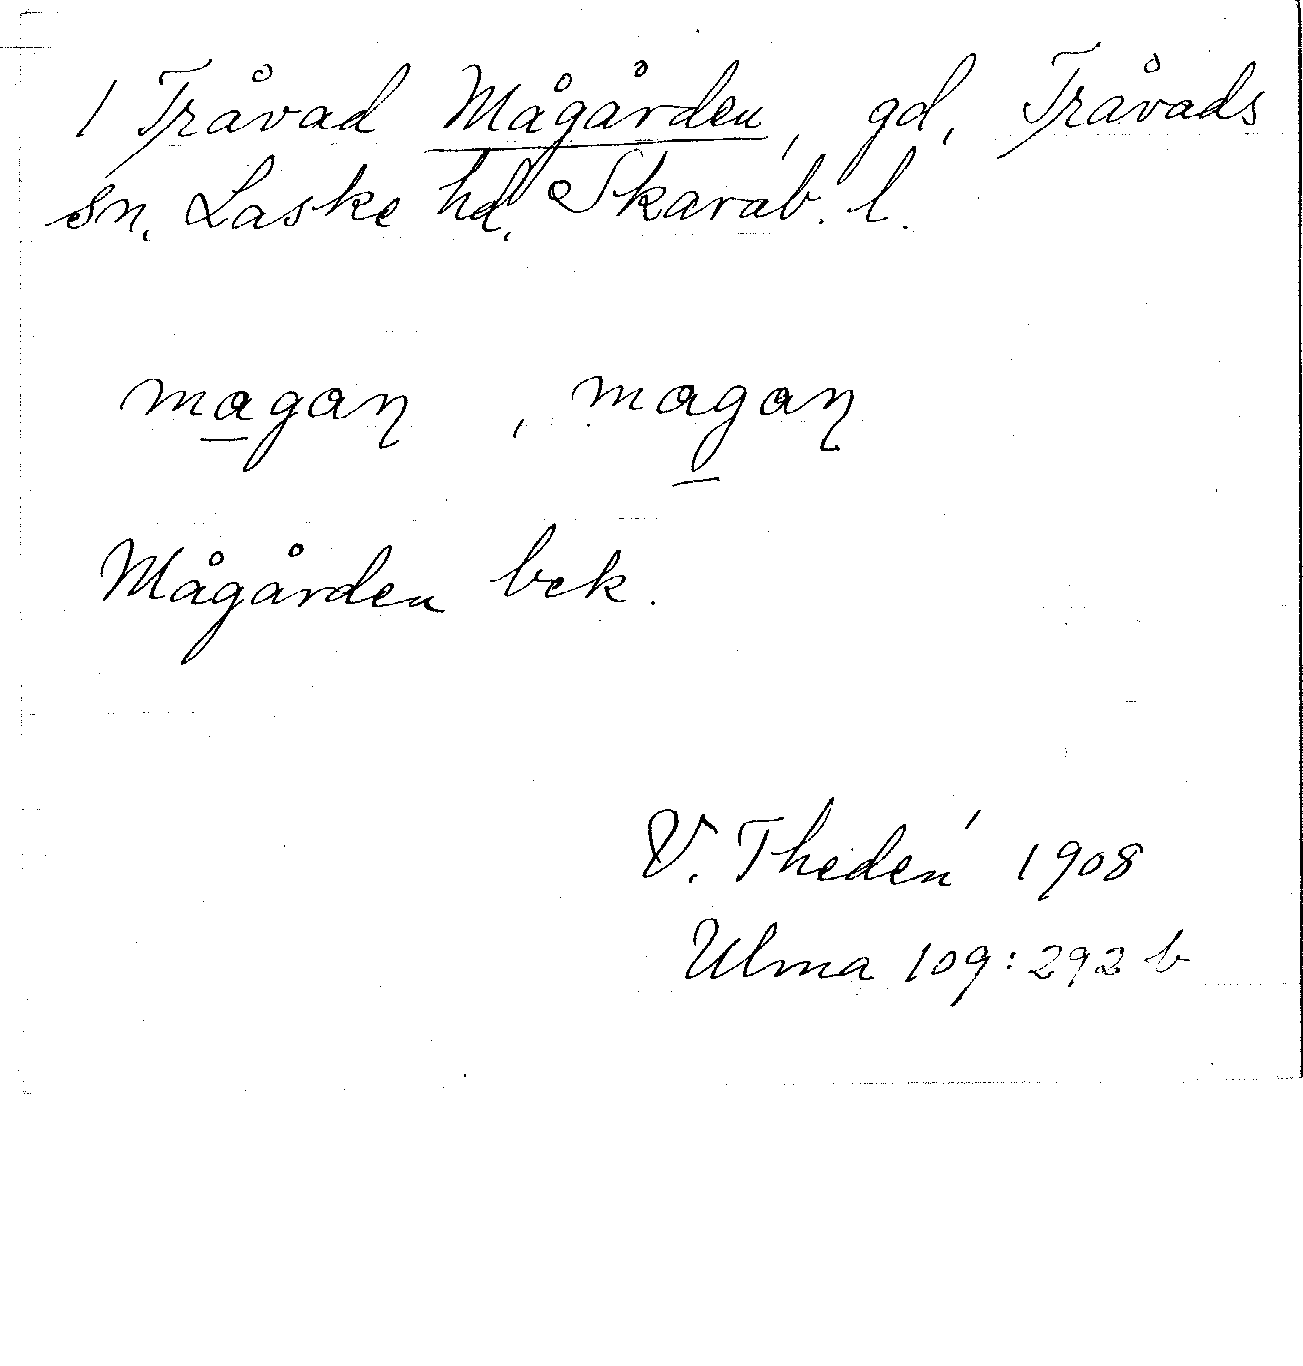 1 Tråvad Mågården, gd, Tråvads
sn. Laske hd. Skarab. l.
magaɳ , magaɳ
Mågården bek.
V. Thedén 1908
Ulma 109:292 b